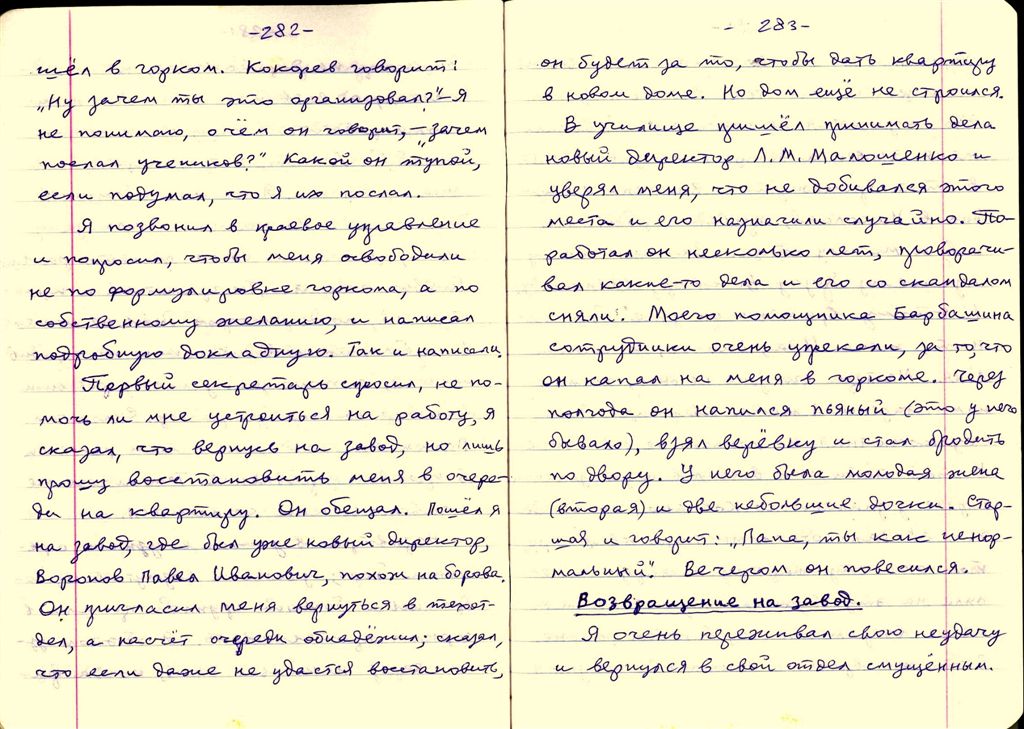 -282-
шёл в горком. Кокорев говорит:
„Ну зачем ты это организовал?" – Я
не понимаю, о чём он говорит, – „зачем
послал учеников?" Какой он тупой,
если подумал, что я их послал.
Я позвонил в краевое управление
и попросил, чтобы меня освободили
не по формулировке горкома, а по
собственному желанию, и написал
подробную докладную. Так и написали.
Первый секретарь спросил, не по-
мочь ли мне устроиться на работу, я
сказал, что вернусь на завод, но лишь
прошу восстановить меня в очере-
ди на квартиру. Он обещал. Пошёл я
на завод, где был уже новый директор,
Воронов Павел Иванович, похож на борова.
Он пригласил меня вернуться в техот-
дел, а насчёт очереди обнадёжил; сказал,
что если даже не удастся восстановить,
- 283-
он будет за то, чтобы дать квартиру
в новом доме. Но дом ещё не строился.
В училище пришёл принимать дела
новый директор Л.М. Малошенко и
уверял меня, что не добивался этого
места и его назначили случайно. По-
работал он несколько лет, проворачи-
вал какие-то дела и его со скандалом
сняли. Моего помощника Барбашина
сотрудники очень упрекали, за то, что
он капал на меня в горкоме. Через
полгода он напился пьяный (это у него
бывало), взял верёвку и стал бродить
по двору. У него была молодая жена
(вторая) и две небольшие дочки. Стар-
шая и говорит: „Папа, ты как ненор-
мальный". Вечером он повесился.
Возвращение на завод.
Я очень переживал свою неудачу
и вернулся в свой отдел смущённым.